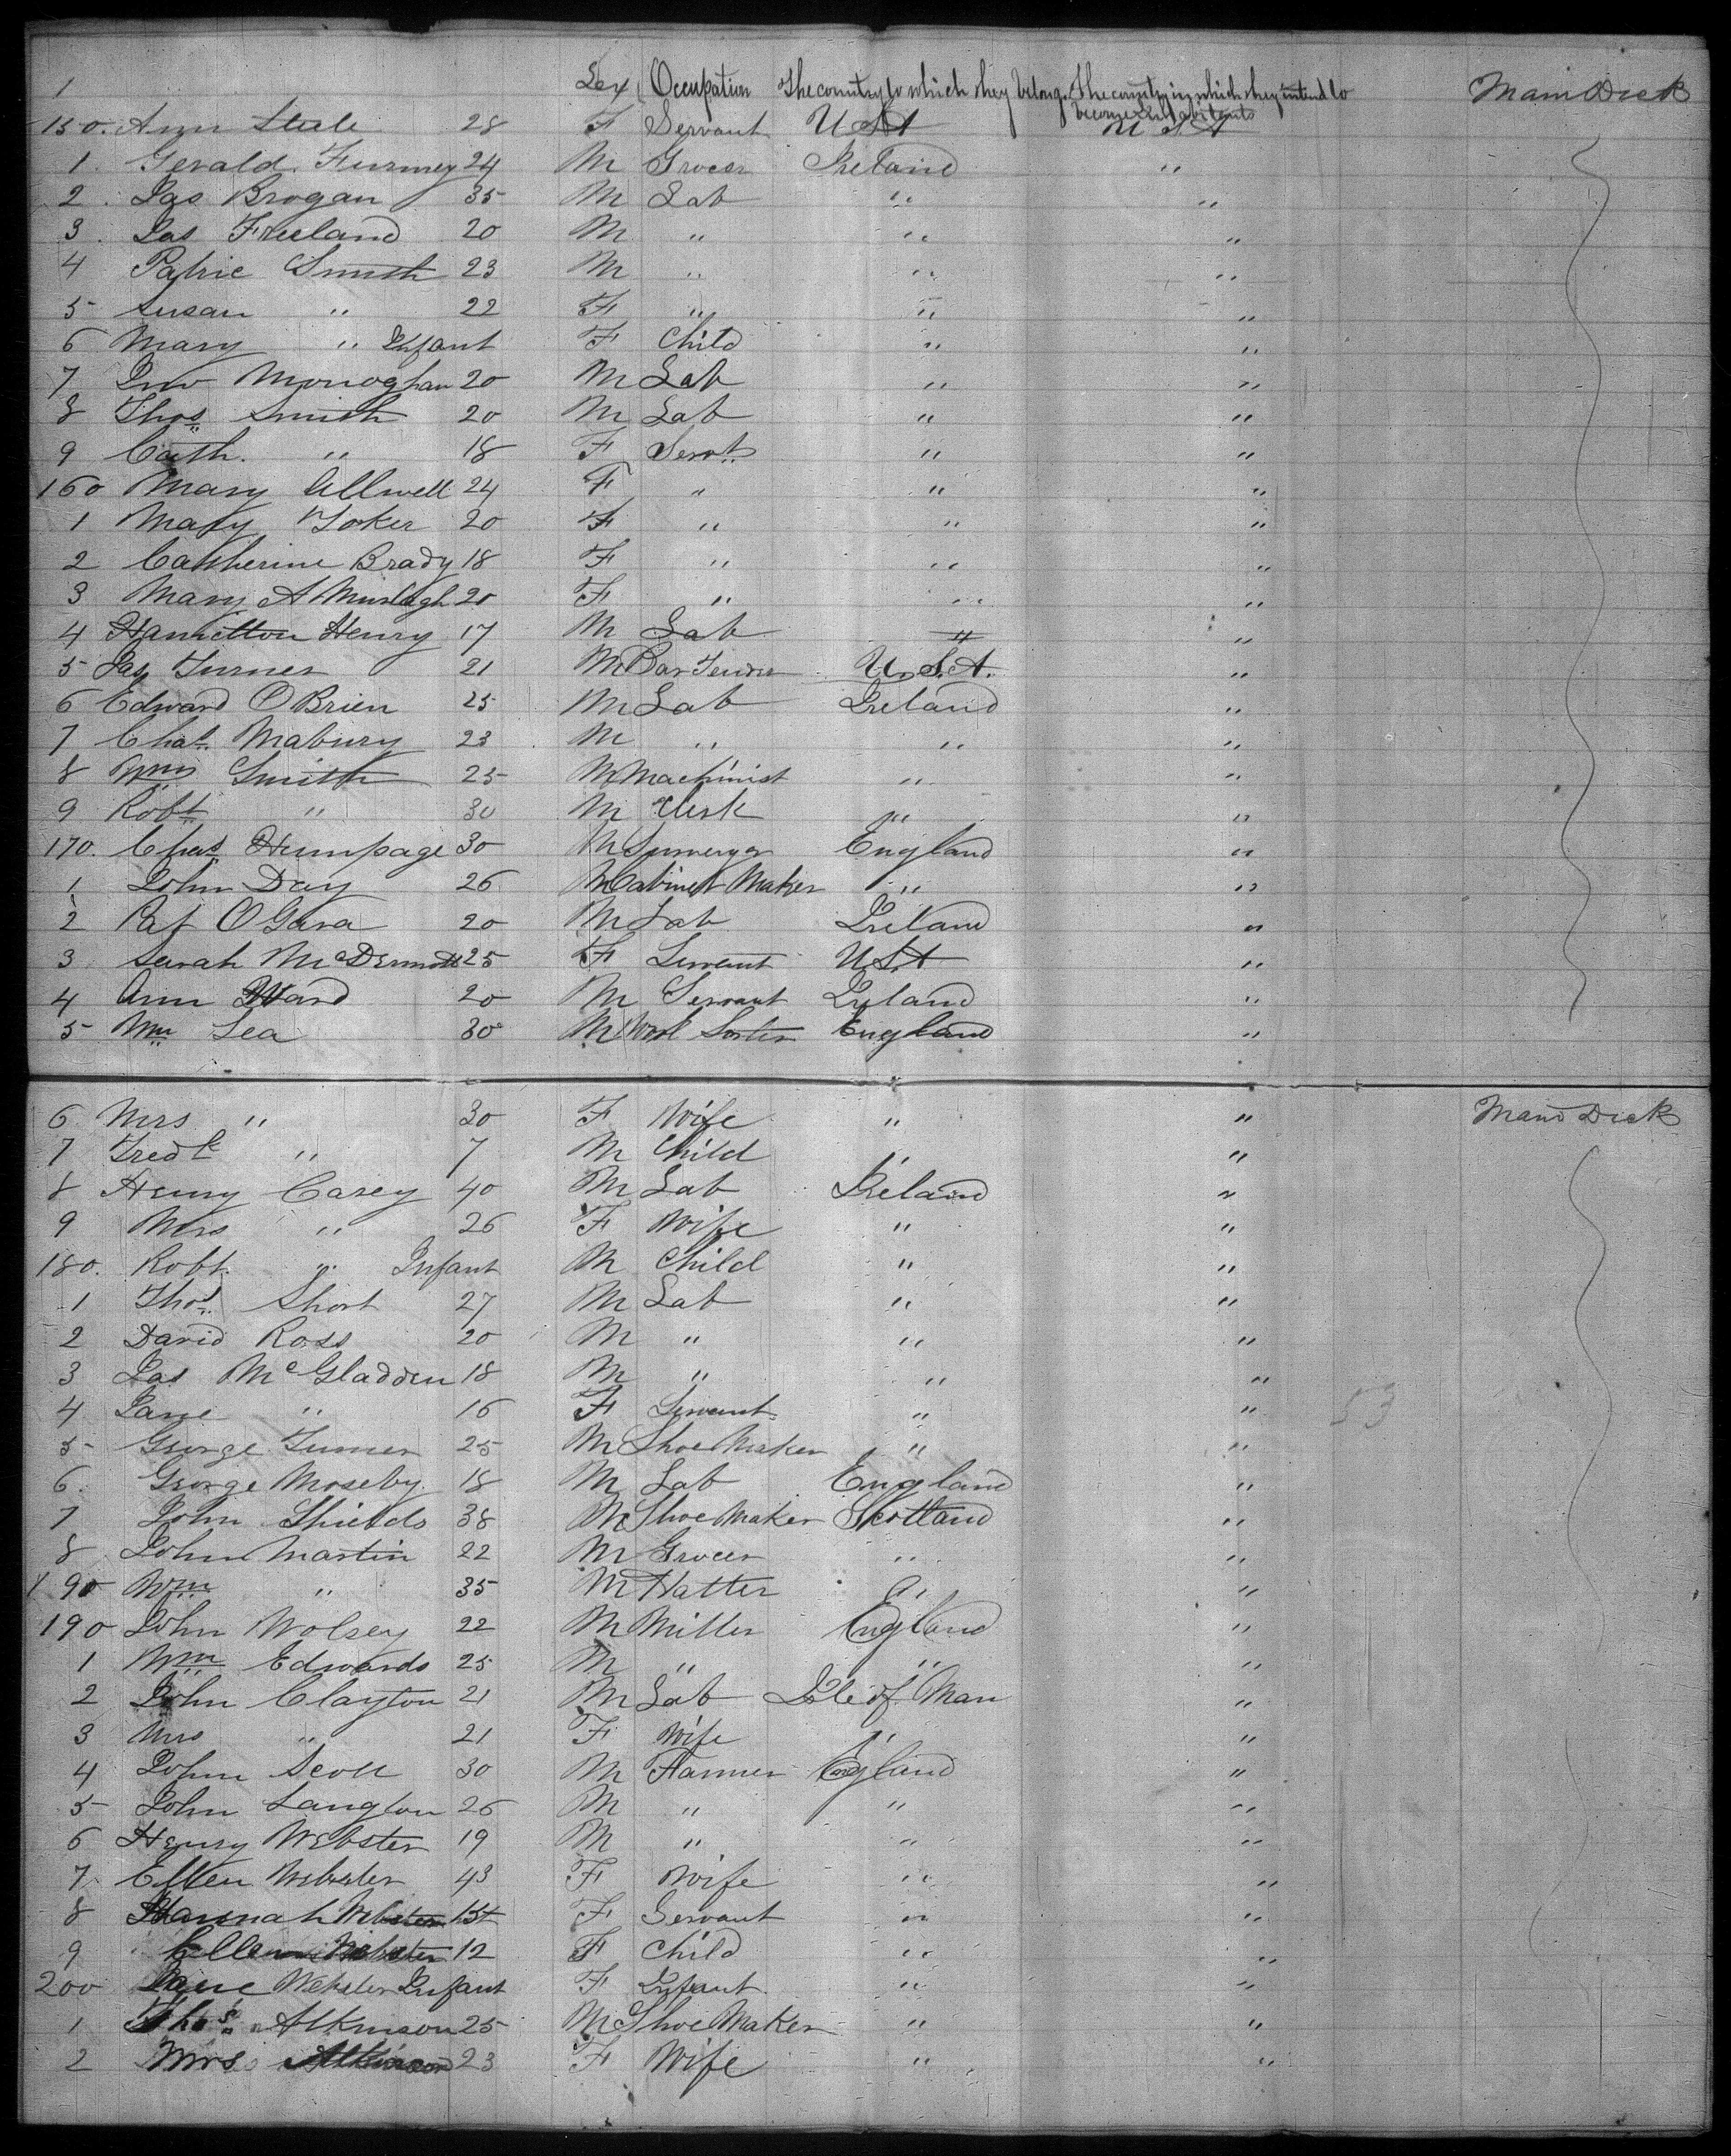 1 Sex Occupation The country to which they belong. The country in which they intend to become Inhabitants Main Deck
150. Ann Steele 28 F Servant USA USA
1. Gerald 24 M Grocer Ireland "
2. Jas Brogan 35 M Lab " "
3. Jas Freeland 20 M " " "
4 Patric Smith 23 M " " "
5 Susan " 22 F " " "
6 Mary " Infant F Child " "
7 Jno Monoghan 20 M Lab " "
8 Thos Smith 20 M Lab " "
9 Cath. " 18 F Servt " "
160 Mary Allwell 24 F " " "
1 Mary 20 F " " "
2 Catherine Brady 18 F " " "
3 Mary A Murtagh 20 F " " "
4 Hamilton Henry 17 M Lab " "
5 Jas Turner 21 M Bar Tender U.S.A. "
6 Edward O Brien 25 M Lab Ireland "
7 Chas Mabury 23 M " " "
8 Wm Smith 25 M Machinist " "
9 Robt " 30 M Clerk " "
170. Chas Humpage 30 M Surveyor England "
1 John Day 26 M Cabinet Maker " "
2 Pat O Gara 20 M Lab Ireland "
3 Sarah McDermott 25 F Servant USA "
4 Ann Ward 20 M Servant Ireland "
5 Wm Lea 30 M Wool Sorter England "
6 Mrs " 30 F Wife " " Main Deck
7 Fredk " 7 M Child " "
8 Henry Casey 40 M Lab Ireland "
9 Mrs " 26 F Wife " "
180. Robt. " Infant M Child " "
1 Thos Short 27 M Lab " "
2 David Ross 20 M " " "
3 Jas McGladden 18 M " " "
4 Jane " 16 F Servant " " 53
5 George Turner 25 M Shoe Maker " "
6. George Moseby 18 M Lab England "
7 John Shields 38 M Shoe Maker Scotland "
8 John Martin 22 M Grocer " "
190 Wm " 35 M Hatter " "
190 John Wolsey 22 M Miller England "
1 Wm Edwards 25 M " " "
2 John Clayton 21 M Lab Isle of Man "
3 Mrs " 21 F Wife " "
4 John Scott 30 M Farmer England "
5 John Langton 26 M " " "
6 Henry Webster 19 M " " "
7 Ellen Webster 43 F Wife " "
8 Hannah Webster F Servant " "
9 Ellen Webster 12 F Child " "
200 Jane Webster Infant F Infant " "
1 Thos. Atkinson 25 M Shoe Maker " "
2 Mrs Atkinson 23 F Wife " "